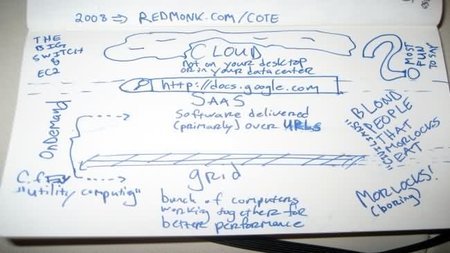 2008 ⇒ REDMONK.COM/COTE
THE
BIG
SWITCH
&
EC2
CLOUD
not on your desktop
or in your datacenter
?
MOST
FUN
TO SAY
http://docs.google.com
SAAS
Software delivered
(primarily) over URLs
OnDemand
BLOND
PEOPLE
THAT
MORLOCKS
EAT
grid
bunch of computers
working together for
better performance
"utility computing"
MORLOCKS!
(boring)